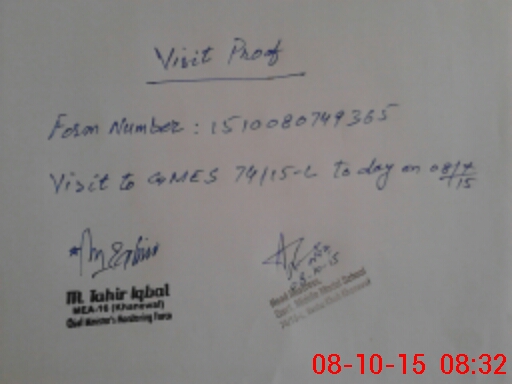 Visit Proof
Form Number : 1510080749365
Visit to GMES 74/15-L to day on 08/x/15
M. Tahir Iqbal
MEA-16 (Khanewal)
Chief Minister's Monitoring Force
08-10-15
Head
Govt. Middle Model School
08-10-15 08:32